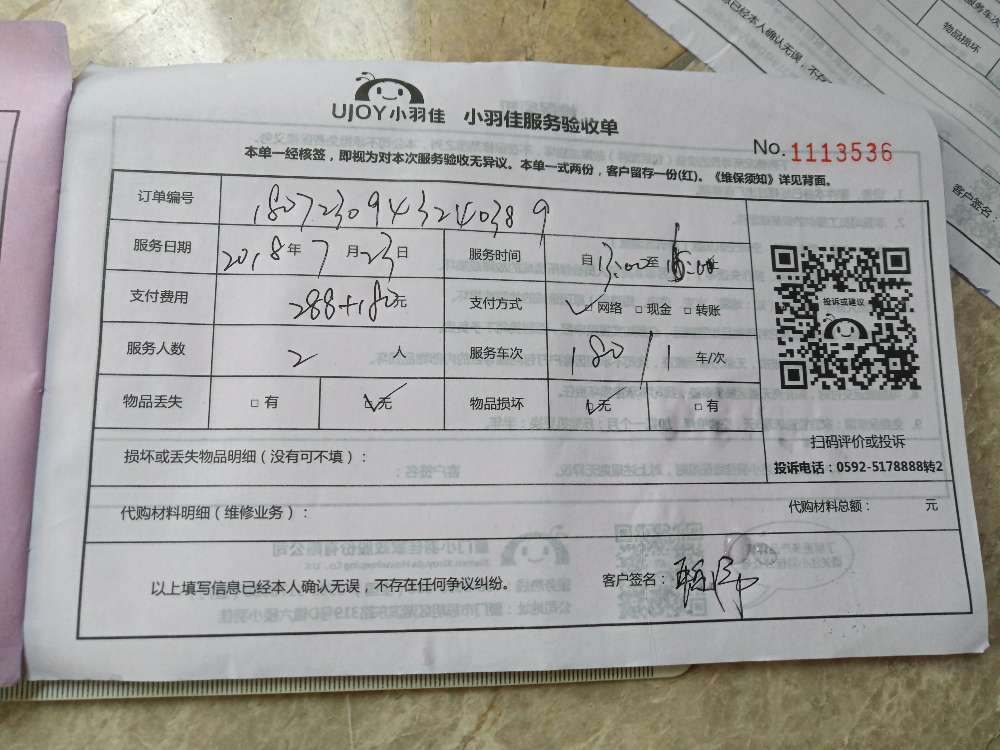 UJOY小羽佳 小羽佳服务验收单
No.1113536
本单一经核签，即视为对本次服务验收无异议。本单一式两份，客户留存一份(红)。《维保须知》详见背面。
订单编号 1807230943240389
服务日期 2018年 7月23日 服务时间 自13:00至
支付费用 288+180元 支付方式 ☑网络 □现金 □转账
服务人数 2 人 服务车次 180/1 车/次
物品丢失 □有 ☑无 物品损坏 ☑无 □有
投诉或建议
扫码评价或投诉
投诉电话：0592-5178888转2
损坏或丢失物品明细（没有可不填）：
代购材料明细（维修业务）： 代购材料总额： 元
以上填写信息已经本人确认无误，不存在任何争议纠纷。 客户签名：
服务车次
物品损坏
息已经本人确认无误，不存
客户签名：